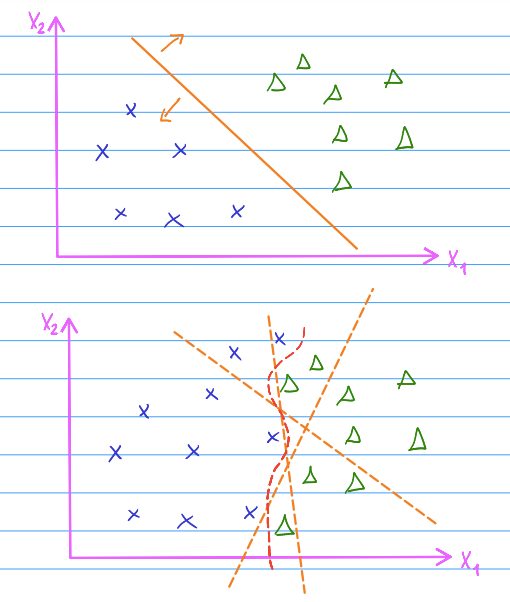 X₂
X₁
X₂
X₁